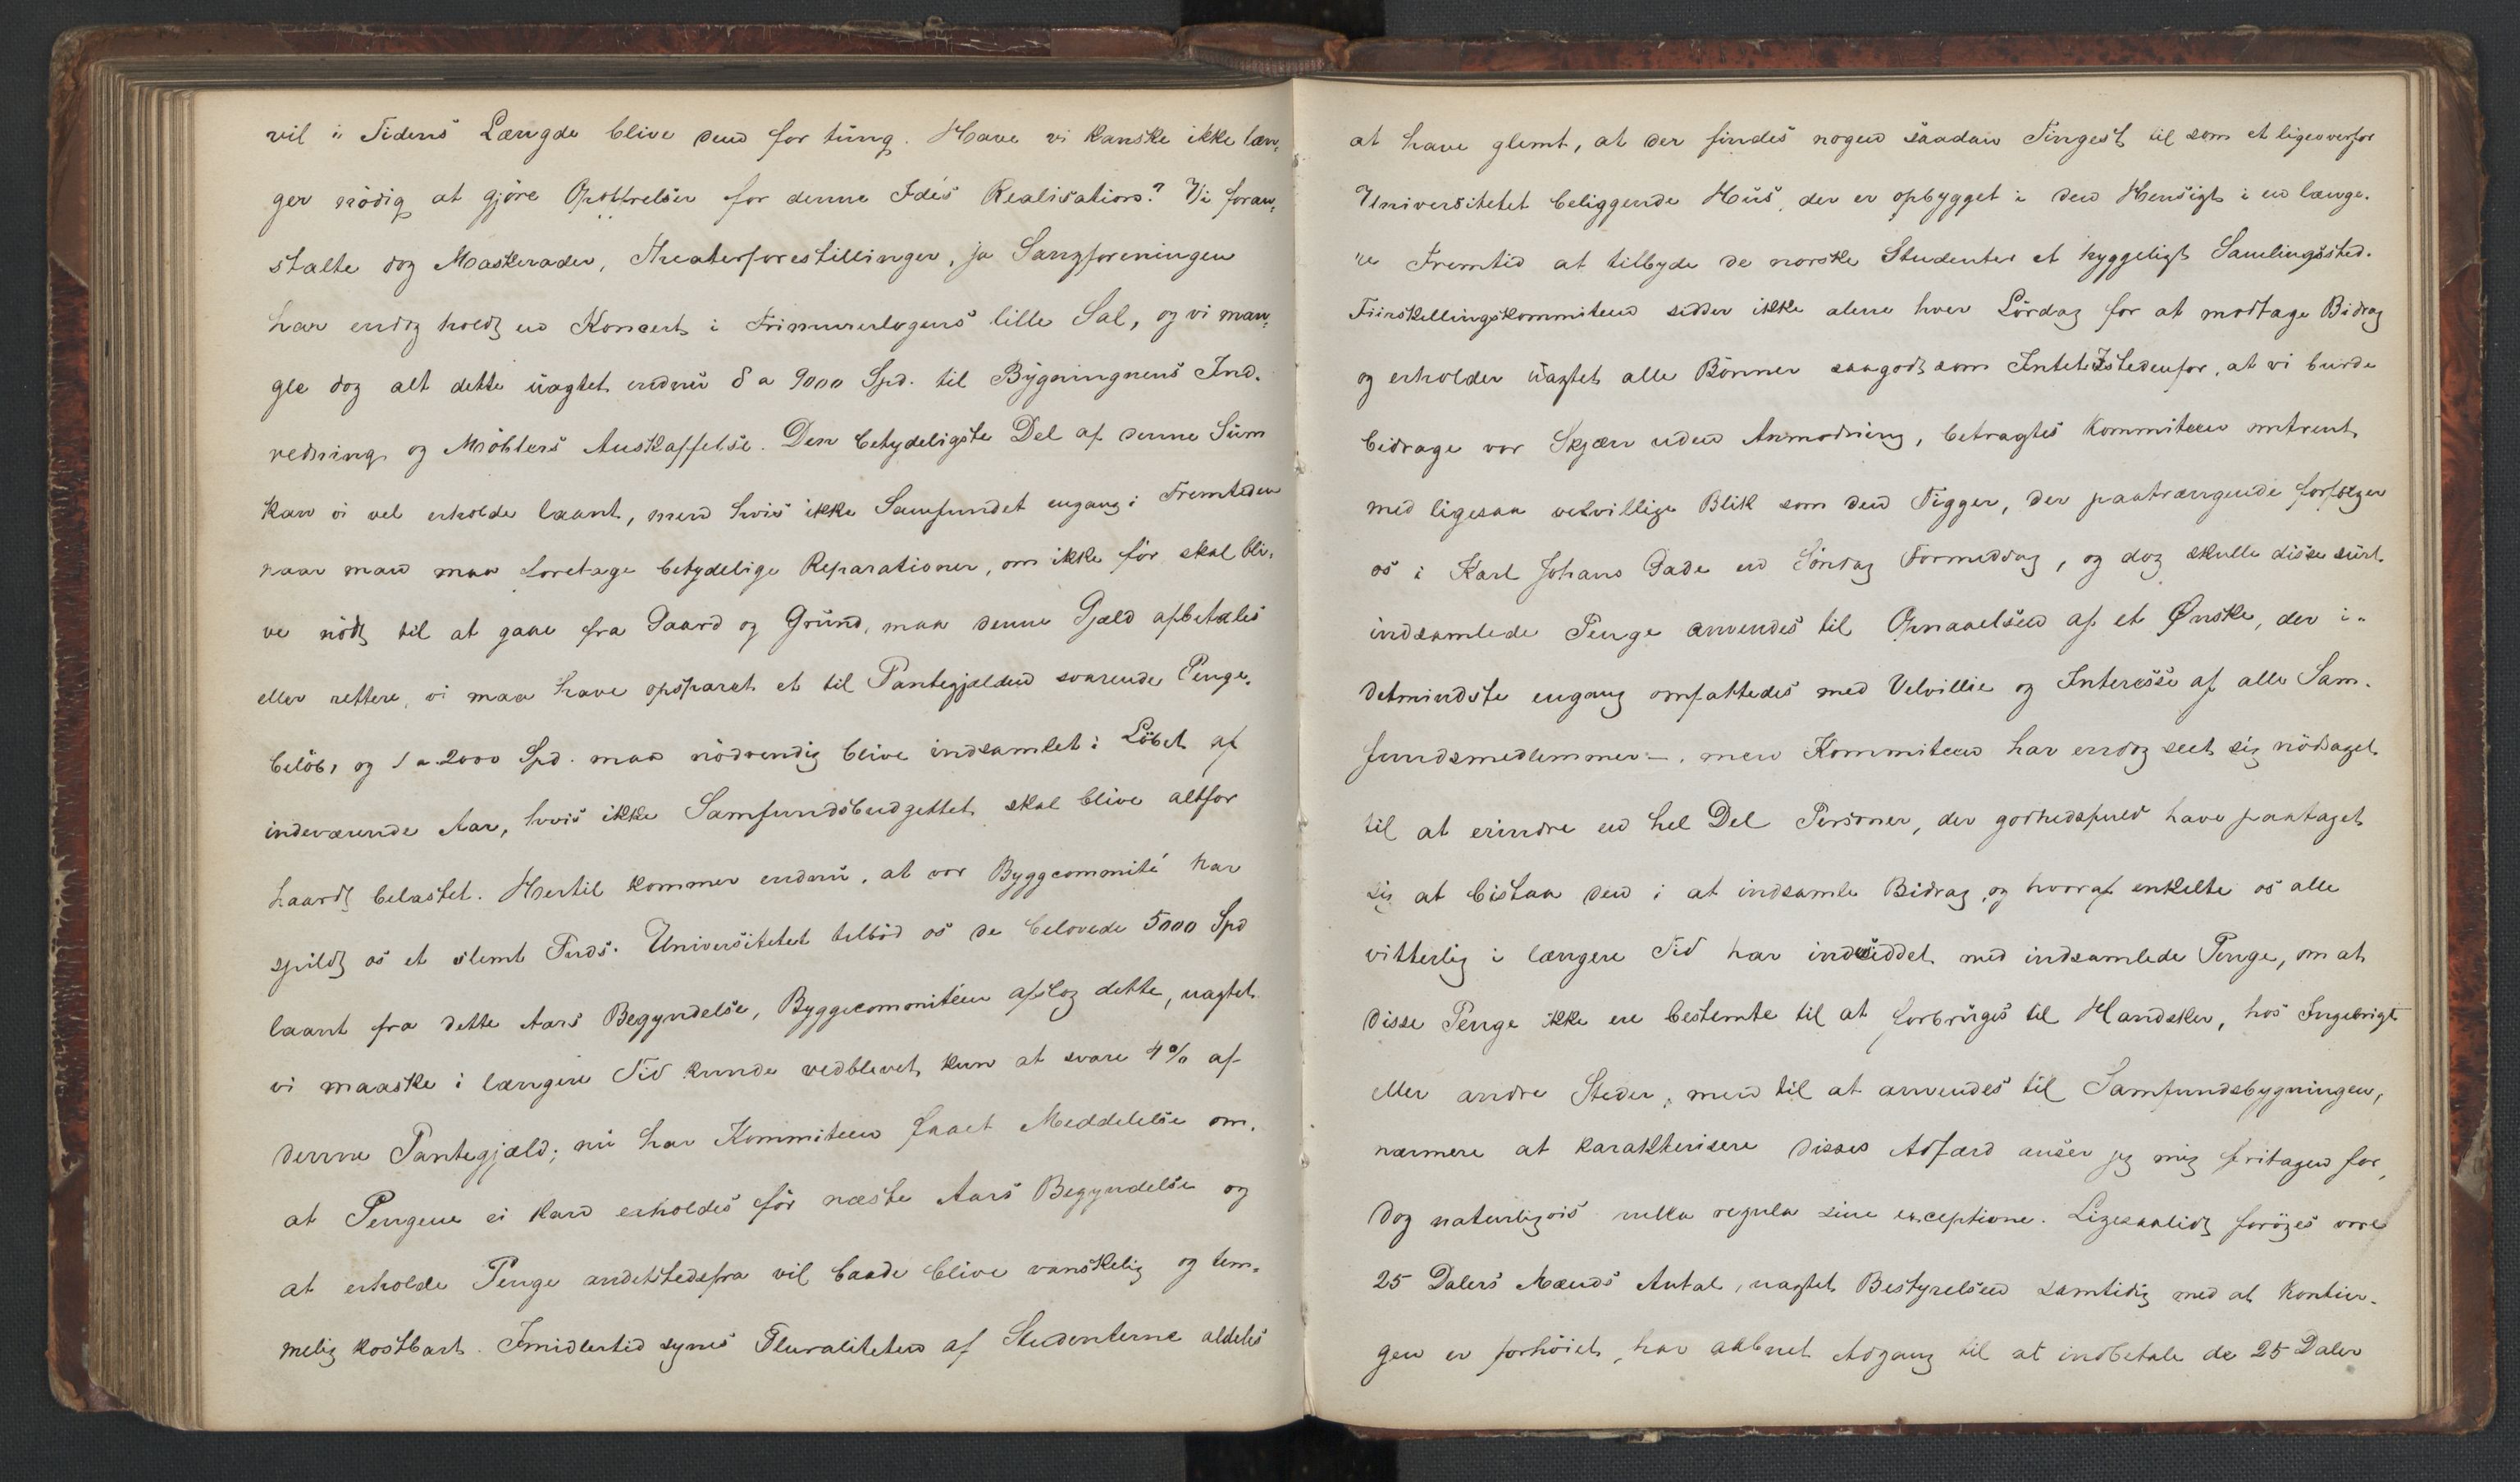 vil i Tidens Længde blive den for tung. Have vi kanske ikke læn-
ger nödig at gjöre Opoffrelser for denne Idés Realisation? Vi foran-
stalte dog Maskerader, Theaterforestillinger, ja Sangforeningen
har endog holdt en Koncert i Frimurerlogens lille Sal, og vi man-
gle dog alt dette uagtet endnu 8 a 9000 Spd. til Bygningnens Ind-
redning og Möblers Anskaffelse. Den betydeligste Del af denne Sum
kan vi vel erholde laant, men hvis ikke Samfundet engang i Fremtiden
naar man maa foretage betydelige Reparationer, om ikke för skal bli-
ve nödt til at gaae fra Gaard og Grund, maa denne Gjæld afbetales
eller rettere, vi maa have opsparet et til Pantegjælden svarende Penge-
belöb, og 1 a 2000 Spd. maa nödvendig blive indsamlet i Löbet af
indeværende Aar, hvis ikke Samfundsbudgettet skal blive altfor
haardt belastet. Hertil kommer endnu, at vor Byggcommité har
spildt os et slemt Puds. Universitetet tilböd os de belovede 5000 Spd
laant fra dette Aars Begyndelse, Byggecommitéen afslog dette, uagtet
vi maaske i længere Tid kunde vedblevet kun at svare 4% af
denne Pantegjæld; nu har Kommiteen faaet Meddelelse om,
at Pengene ei kan erholdes för næste Aars Begyndelse og
at erholde Penge andetstedsfra vil baade blive vanskelig og tem-
melig kostbart. Imidlertid synes Pluraliteten af Studenterne aldeles
at have glemt, at der findes nogen saadan Tingest til som et ligeoverfor
Universitetet beliggende Hus, der er opbygget i den Hensigt i en længe-
re Fremtid at tilbyde de norske Studenter et hyggeligt Samlingssted.
Fiirskillingskommiteen sidder ikke alene hver Lördag for at modtage Bidrag
og erholder uagtet alle Bönner saagodt som Intet Istedenfor, at vi burde
bidrage vor Skjærv uden Anmodning, betragtes Kommiteen omtrent
med ligesaa velvillige Blik som den Tigger, der paatrængende forfölger
os i Karl Johans Gade en Söndag Formiddag, og dog skulle disse surt
indsamlede Penge anvendes til Opnaaelsen af et Ønske, der i-
detmindste engang omfattedes med Velvillie og Interesse af alle Sam-
fundsmedlemmer –, men Kommiteen har endog seet sig nödsaget
til at erindre en hel Del Personer, der godhedsfuld have paataget
sig at bistaa den i at indsamle Bidrag, og hvoraf enkelte os alle
vitterlig i længere Tid har indesiddet med indsamlede Penge, om at
disse Penge ikke ere bestemte til at forbruges til Handsker, hos Ingebrigt
eller andre Steder, men til at anvendes til Samfundsbygningen,
nærmere at karakterisere disses Adfærd anser jeg mig fritagen for,
dog naturligvis nulla regula sine exceptione. Ligesaalidt foröges vore
25 Dalers Mænds Antal, uagtet Bestyrelsen samtidig med at Kontin-
gen er forhöiet, har aabnet Adgang til at indbetale de 25 Daler